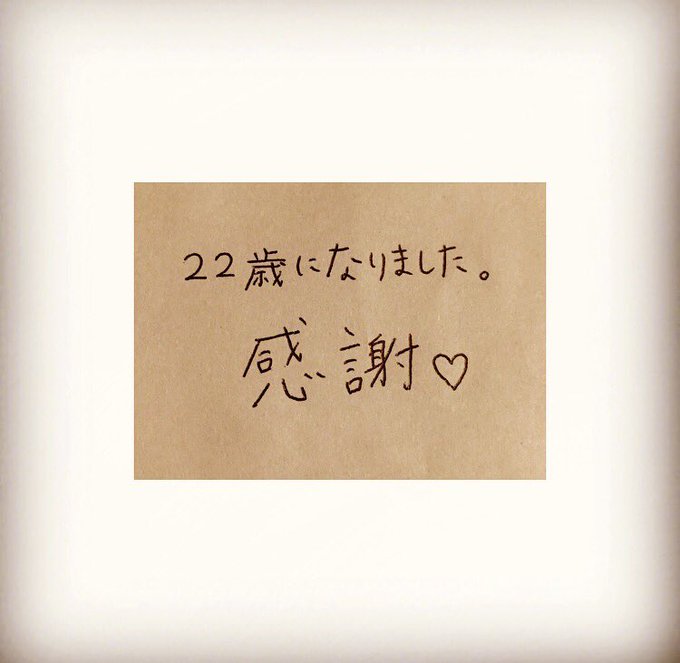 22歳になりました。
感謝♡